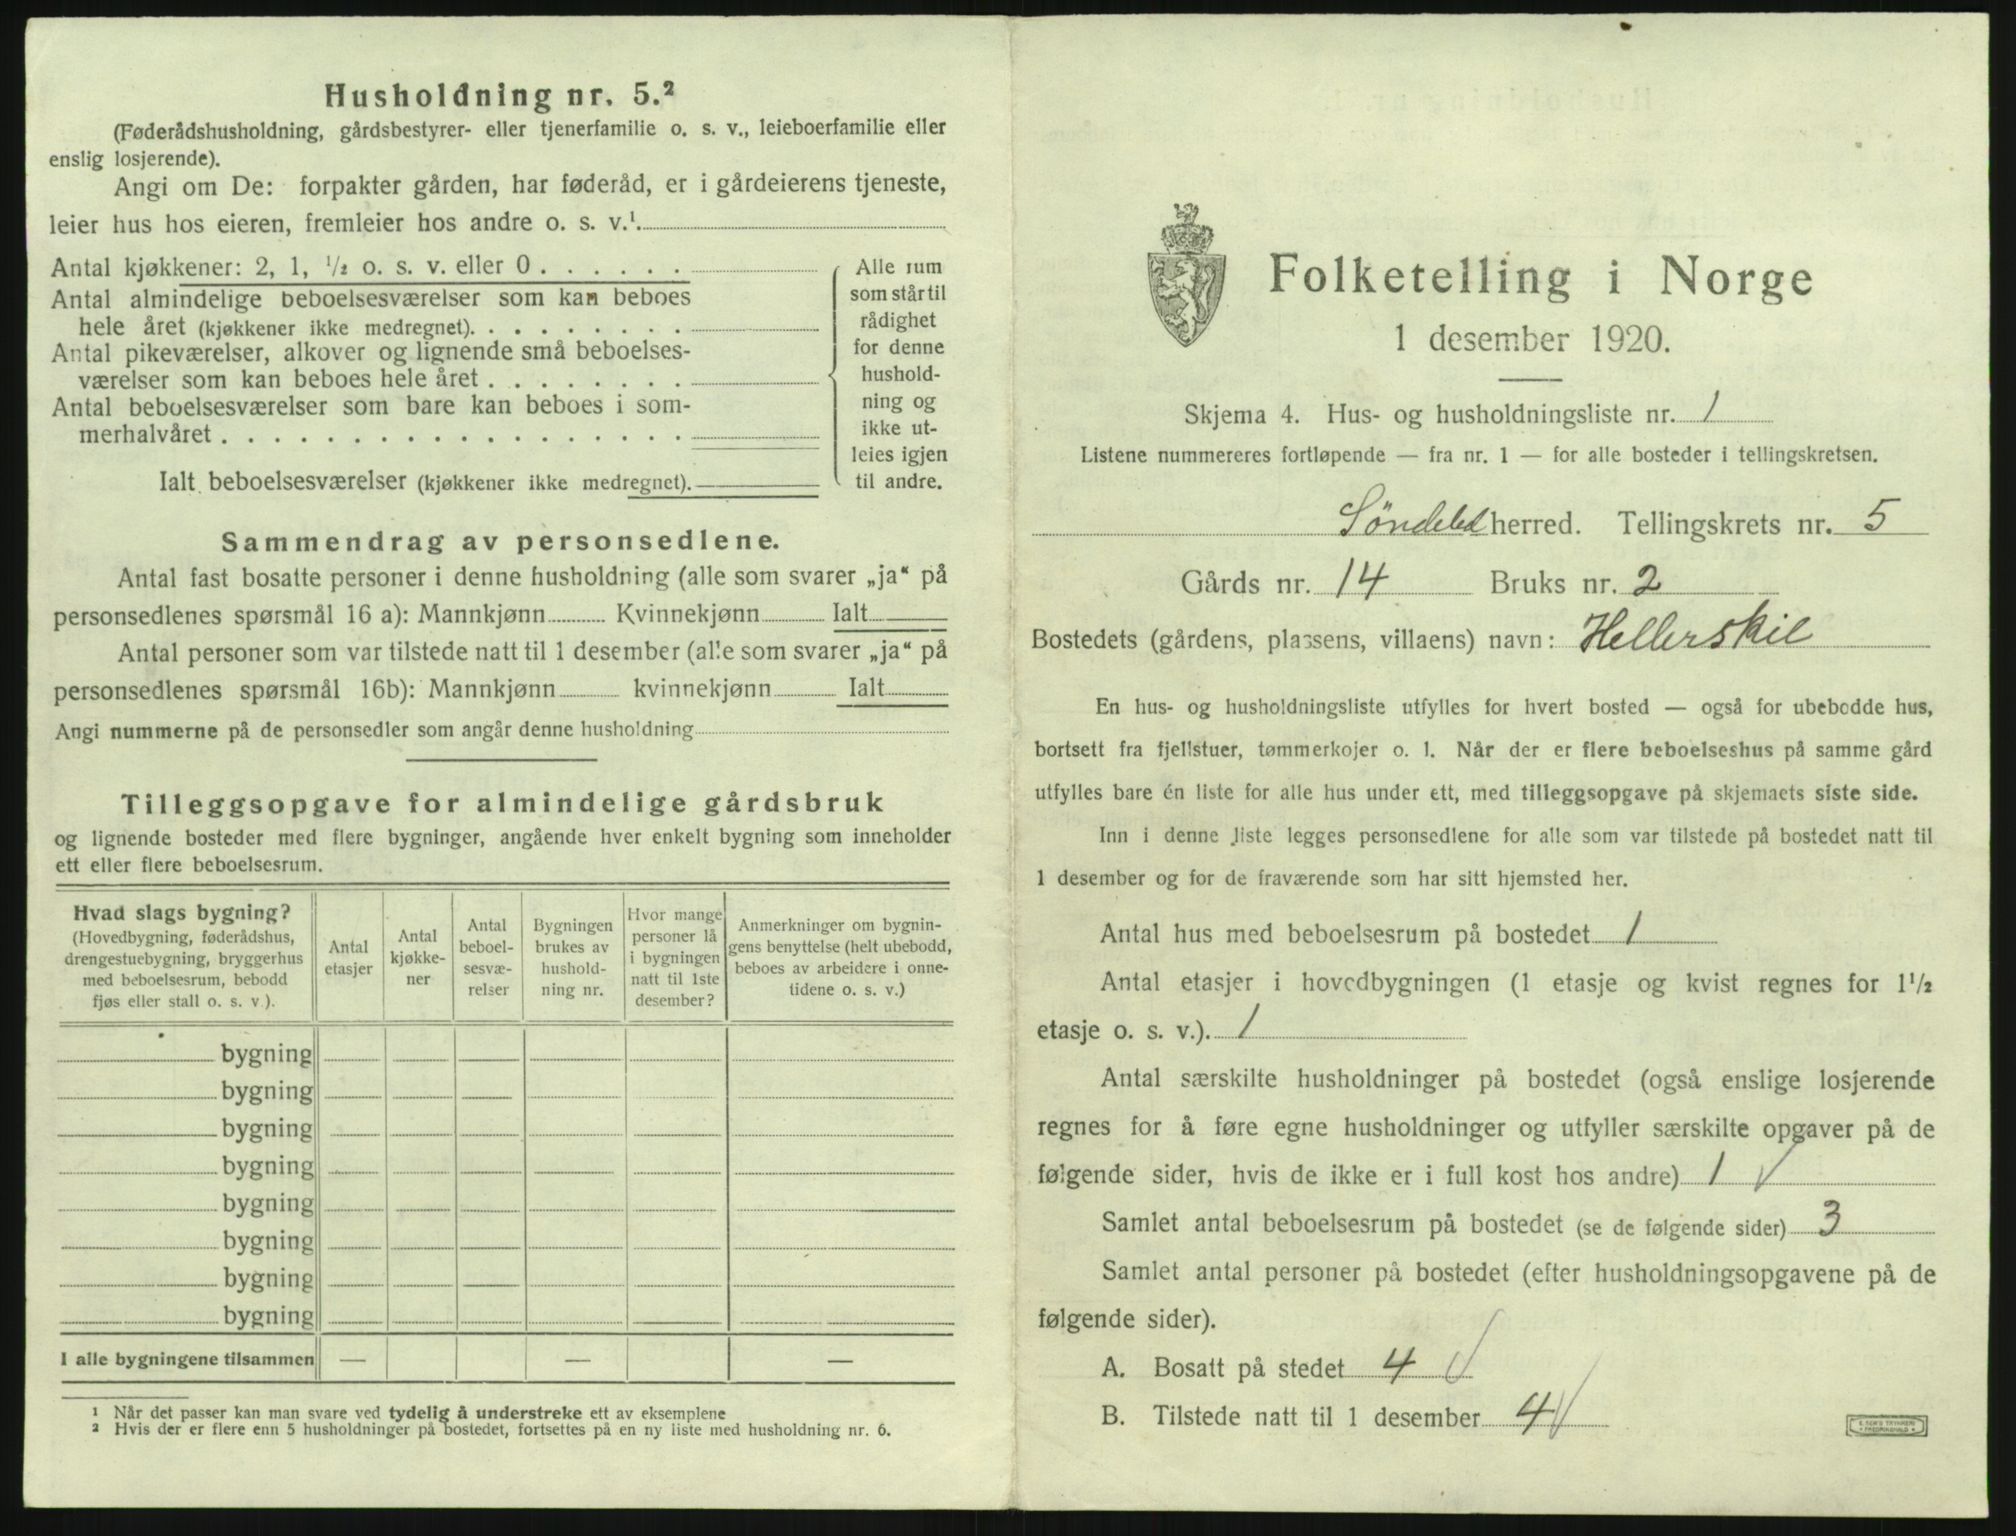 Husholdning nr. 5.²
(Føderådshusholdning, gårdsbestyrer- eller tjenerfamilie o. s. v., leieboerfamilie eller
enslig losjerende).
Angi om De: forpakter gården, har føderåd, er i gårdeierens tjeneste,
leier hus hos eieren, fremleier hos andre o. s. v.¹
Antal kjøkkener: 2, 1, ½ o. s. v. eller 0 . . . . . .
Antal almindelige beboelsesværelser som kan beboes
hele året (kjøkkener ikke medregnet). . . . . . . . .
Antal pikeværelser, alkover og lignende små beboelses-
værelser som kan beboes hele året . . . . . . . .
Antal beboelsesværelser som bare kan beboes i som-
merhalvåret . . . . . . . . . . . . . . . . . .
Ialt beboelsesværelser (kjøkkener ikke medregnet).
Alle rum
som står til
rådighet
for denne
hushold-
ning og
ikke ut-
leies igjen
til andre.
Sammendrag av personsedlene.
Antal fast bosatte personer i denne husholdning (alle som svarer „ja“ på
personsedlenes spørsmål 16 a): Mannkjønn Kvinnekjønn Ialt
Antal personer som var tilstede natt til 1 desember (alle som svarer „ja“ på
personsedlenes spørsmål 16b): Mannkjønn kvinnekjønn Ialt
Angi nummerne på de personsedler som angår denne husholdning
Tilleggsopgave for almindelige gårdsbruk
og lignende bosteder med flere bygninger, angående hver enkelt bygning som inneholder
ett eller flere beboelsesrum.
Hvad slags bygning?
(Hovedbygning, føderådshus,
drengestuebygning, bryggerhus
med beboelsesrum, bebodd
fjøs eller stall o. s. v.).
Antal
etasjer
Antal
kjøkke-
ner
Antal
beboel-
sesvæ-
relser
Bygningen
brukes av
hushold-
ning nr.
Hvor mange
personer lå
i bygningen
natt til 1ste
desember?
Anmerkninger om bygnin-
gens benyttelse (helt ubebodd,
beboes av arbeidere i onne-
tidene o. s. v.)
bygning
bygning
bygning
bygning
bygning
bygning
bygning
bygning
I alle bygningene tilsammen — — —
¹ Når det passer kan man svare ved tydelig å understreke ett av eksemplene
² Hvis der er flere enn 5 husholdninger på bostedet, fortsettes på en ny liste med husholdning nr. 6.
Folketelling i Norge
1 desember 1920.
Skjema 4. Hus- og husholdningsliste nr. 1
Listene nummereres fortløpende — fra nr. 1 — for alle bosteder i tellingskretsen.
Søndeled herred. Tellingskrets nr. 5
Gårds nr. 14 Bruks nr. 2
Bostedets (gårdens, plassens, villaens) navn: Hellerskil
En hus- og husholdningsliste utfylles for hvert bosted — også for ubebodde hus,
bortsett fra fjellstuer, tømmerkojer o. l. Når der er flere beboelseshus på samme gård
utfylles bare én liste for alle hus under ett, med tilleggsopgave på skjemaets siste side.
Inn i denne liste legges personsedlene for alle som var tilstede på bostedet natt til
1 desember og for de fraværende som har sitt hjemsted her.
Antal hus med beboelsesrum på bostedet 1
Antal etasjer i hovedbygningen (1 etasje og kvist regnes for 1½
etasje o. s. v.). 1
Antal særskilte husholdninger på bostedet (også enslige losjerende
regnes for å føre egne husholdninger og utfyller særskilte opgaver på de
følgende sider, hvis de ikke er i full kost hos andre) 1 √
Samlet antal beboelsesrum på bostedet (se de følgende sider) 3
Samlet antal personer på bostedet (efter husholdningsopgavene på de
følgende sider).
A. Bosatt på stedet 4 √
B. Tilstede natt til 1 desember 4 √